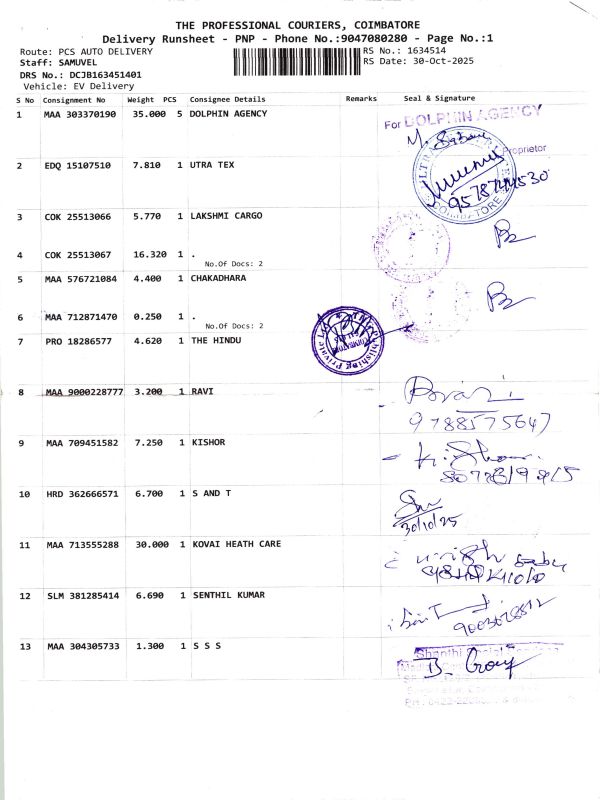 THE PROFESSIONAL COURIERS, COIMBATORE
Delivery Runsheet - PNP - Phone No.:9047080280 - Page No.:1
Route: PCS AUTO DELIVERY
RS No.: 1634514
Staff: SAMUVEL
RS Date: 30-Oct-2025
DRS No.: DCJB163451401
Vehicle: EV Delivery
S No Consignment No Weight PCS Consignee Details Remarks Seal & Signature
1 MAA 303370190 35.000 5 DOLPHIN AGENCY
For DOLPHIN AGENCY
Proprietor
2 EDQ 15107510 7.810 1 UTRA TEX
COIMBATORE
3 COK 25513066 5.770 1 LAKSHMI CARGO
4 COK 25513067 16.320 1 .
No.Of Docs: 2
5 MAA 576721084 4.400 1 CHAKADHARA
6 MAA 712871470 0.250 1 .
No.Of Docs: 2
7 PRO 18286577 4.620 1 THE HINDU
8 MAA 9000228777 3.200 1 RAVI
9788575647
9 MAA 709451582 7.250 1 KISHOR
10 HRD 362666571 6.700 1 S AND T
30/10/25
11 MAA 713555288 30.000 1 KOVAI HEATH CARE
12 SLM 381285414 6.690 1 SENTHIL KUMAR
13 MAA 304305733 1.300 1 S S S